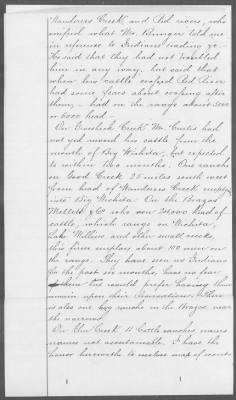 Wanderers Creek and Red rivers, who
verified what Mr. Burger told me
in reference to Indians raiding &c.
He said that they had not troubled
him in any way, but said that
when his cattle crossed Red River
had some fears about crossing after
them, - had on the range about 5000
or 6000 head -
On Creek Mr. Curtis had
not yet moved his cattle from the
mouth of Big Wichita, but expected
to within two months. One ranche
on Good Creek 25 miles south west
from head of Wanderers Creek
into Big Wichita. On the Brazos
& Co who own 20,000 head of
cattle, which range on Wichita,
Lake and other small creeks,
this firm employ about 100 men on
the range. They have seen no Indians
for the past six months, have no fear
of them but would prefer having them
remain upon their Reservation. There
is also one ranche on the Brazos, near
the narrows.
On Elm Creek 11 Cattle ranches names
names not ascertainable. I have the
honor herewith to enclose map of scout